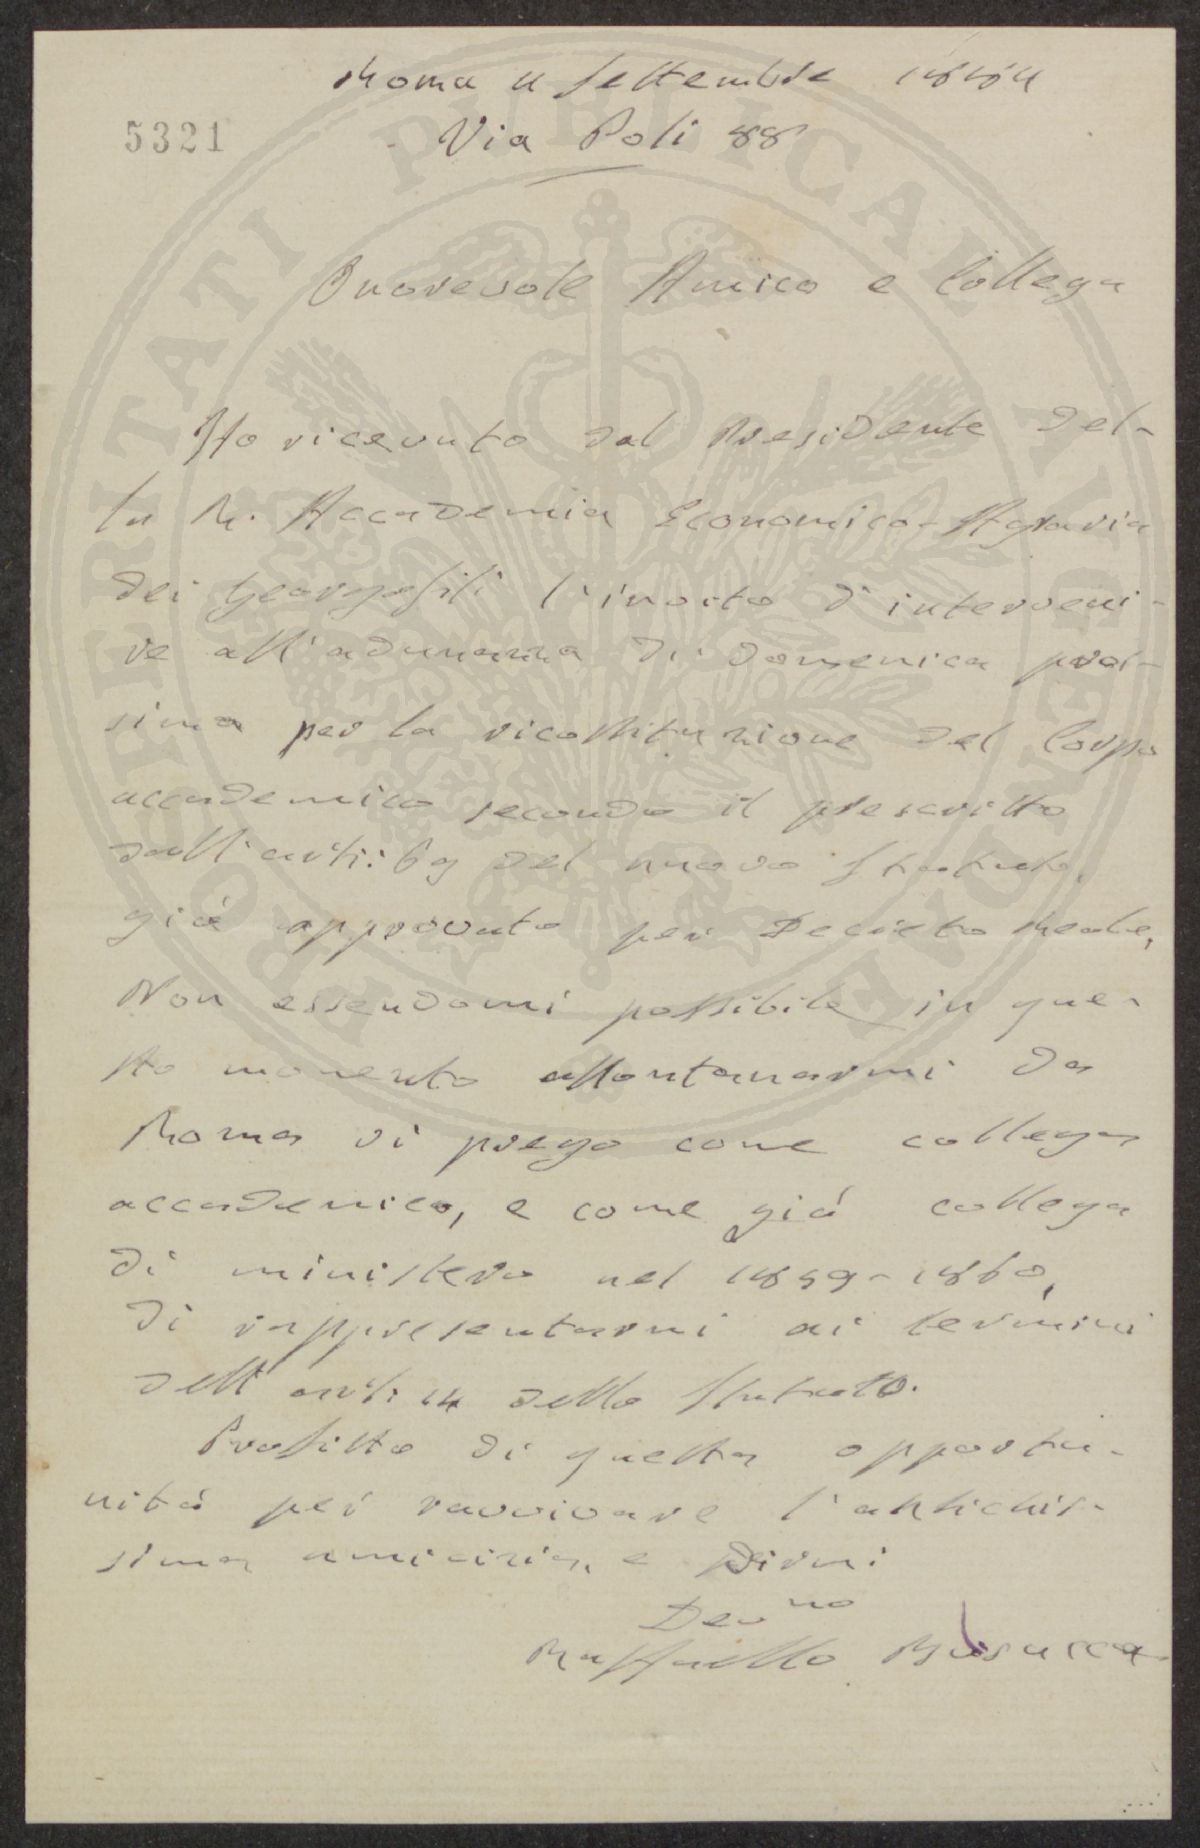 Roma 11 Settembre 1884
5321
Via Poli 88
Onorevole Amico e Collega
Ho ricevuto dal Presidente del-
la R. Accademia Economico-Agraria
dei Georgofili l'invito d'interveni-
re all'adunanza di domenica pros-
sima per la ricostituzione del Corpo
accademico secondo il prescritto
dall'arti: 69 del nuovo Statuto,
già approvato per Decreto Reale,
Non essendomi possibile in que-
sto momento allontanarmi da
Roma vi prego come collega
accademico, e come già collega
di ministero nel 1859-1860,
di rappresentarmi ai termini
dell'arti: 14 dello Statuto.
Profitto di questa opportu-
nità per ravvivare l'antichis-
sima amicizia, e dirmi
Dev mo
Raffaello Busacca
PROSPERITATI PUBLICAE AUGENDAE